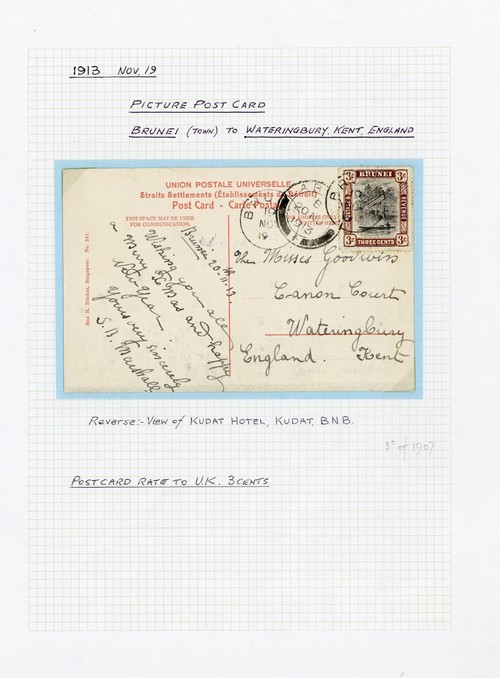 1913 NOV. 19
PICTURE POST CARD
BRUNEI (TOWN) TO WATERINGBURY, KENT, ENGLAND
UNION POSTALE UNIVERSELLE
Straits Settlements (Établissements du Détroit)
Post Card - Carte Postale
THIS SPACE MAY BE USED FOR
COMMUNICATION.
Max H. Hilckes, Singapore. No. 241.
Brunei 20.11.13
Wishing you all
a merry Xmas and happy
New Year.
Yours very sincerely
S. D. Marshall
BRUNEI
3c 3c
BRUNEI BRUNEI
3c 3c
THREE CENTS
The Misses Goodwin
Canon Court
Wateringbury
England. Kent
Reverse:- View of KUDAT HOTEL, KUDAT, B.N.B.
3c of 1907
POSTCARD RATE TO U.K. 3 CENTS